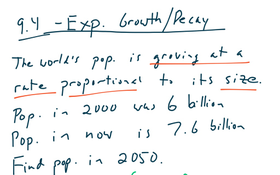 9.4 - Exp. Growth/Decay
The world's pop. is growing at a
rate proportional to its size.
Pop. in 2000 was 6 billion
Pop. in now is 7.6 billion
Find pop. in 2050.